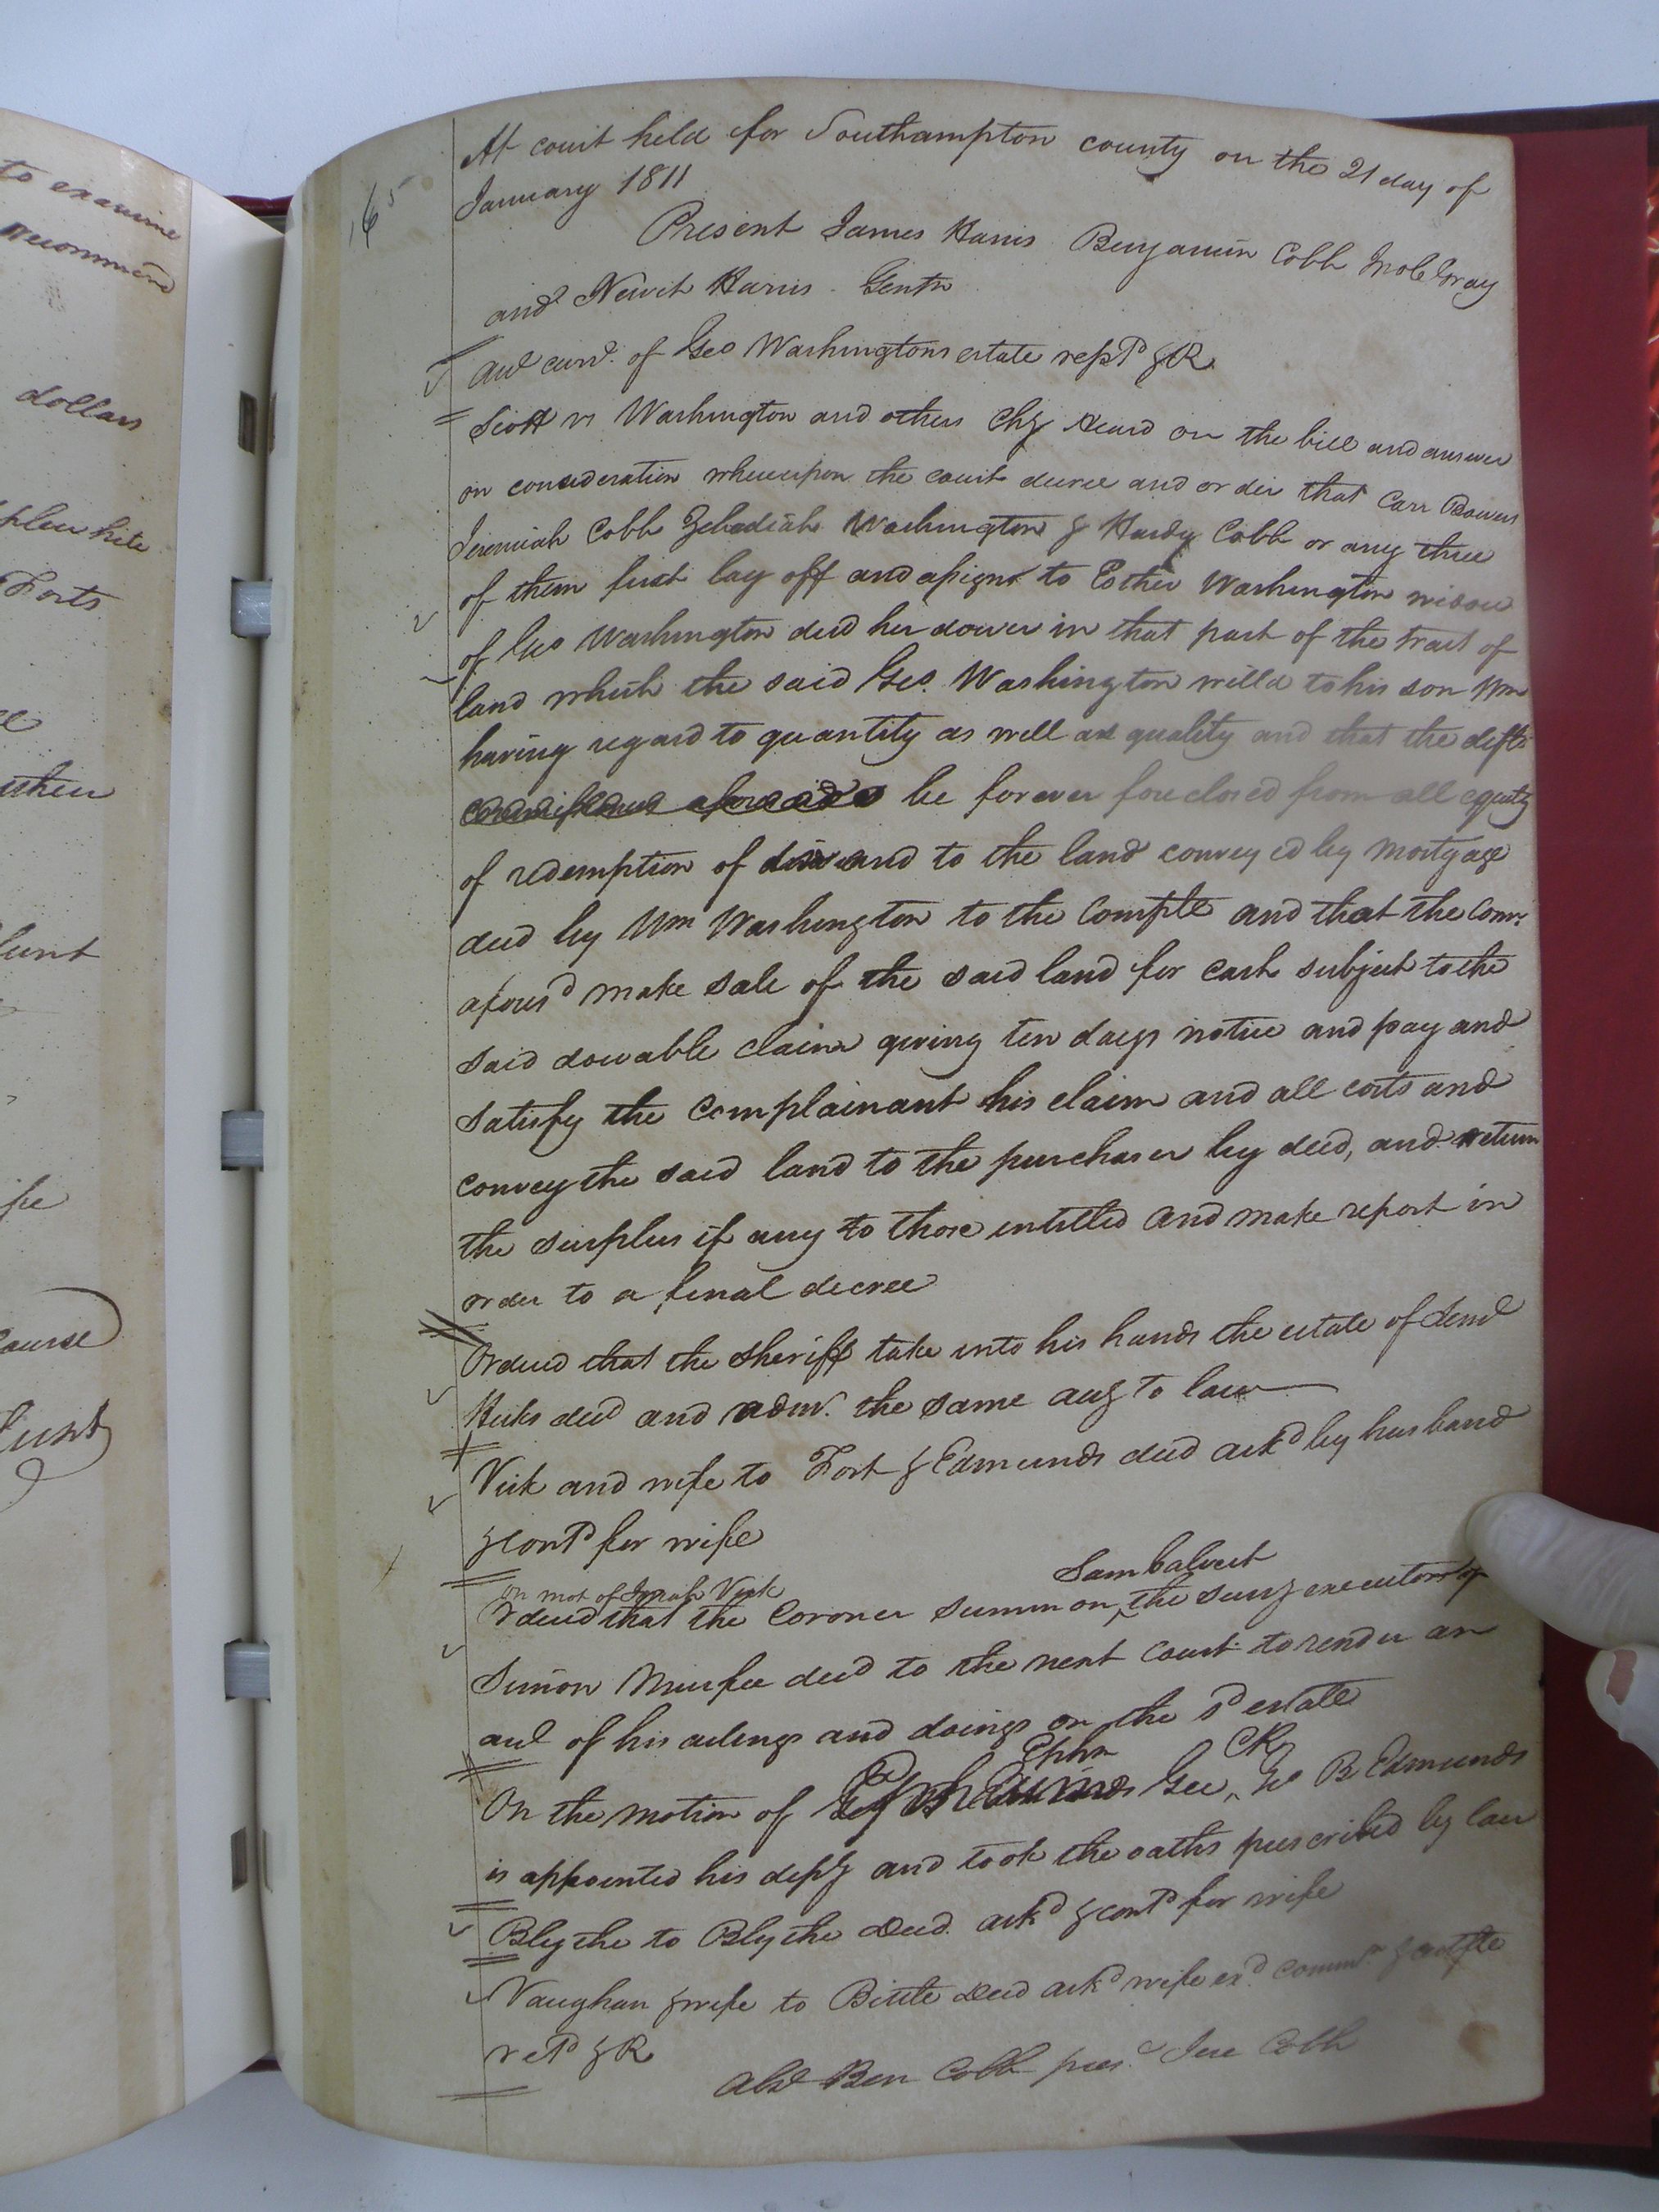 to examine
recommend
dollars
Forts
ourse
165
At court held for Southampton county on the 21 day of
January 1811
Present James Harris Benjamin Cobb Jno C Gray
and Newit Harris Gentn
Aud curr.t of Geo Washingtons estate rept.d & R
Scott vs Washington and others Chy Heard on the bill and answer
on consideration whereupon the court decree and order that Carr Bowers
Jeremiah Cobb Zebediah Washington & Hardy Cobb or any three
of them first lay off and assign to Esther Washington widow
of Geo Washington decd her dower in that part of the tract of
land which the said Geo. Washington willd to his son Wm
having regard to quantity as well as quality and that the defts
be forever foreclosed from all equity
of redemption of in and to the land conveyed by mortgage
deed by Wm Washington to the Complt and that the Comrs
afores.d make sale of the said land for cash subject to the
said dowable claim giving ten days notice and pay and
satisfy the Complainant his claim and all costs and
convey the said land to the purchaser by deed, and return
the surplus if any to those intitled and make report in
order to a final decree
Ordered that the Sheriff take into his hands the estate of
Hicks decd and admr. the same accg to law
Vick and wife to Fort & Edmunds deed ackd by husband
& contd for wife
on mot of Josiah Vick Sam Calvert
Ordered that the Coroner summon the surg executor of
Simon Murfee decd to the next Court to render an
acct of his actings and doings on the sd estate
Ephm Clk
On the motion of Gee, Jno B Edmunds
is appointed his depy and took the oaths prescribed by law
Blythe to Blythe Deed. ackd & contd for wife
Vaughan & wife to Bittle deed ackd wife exd commn & certfte
retd & R
Abst Ben Cobb pres.t Jere Cobb